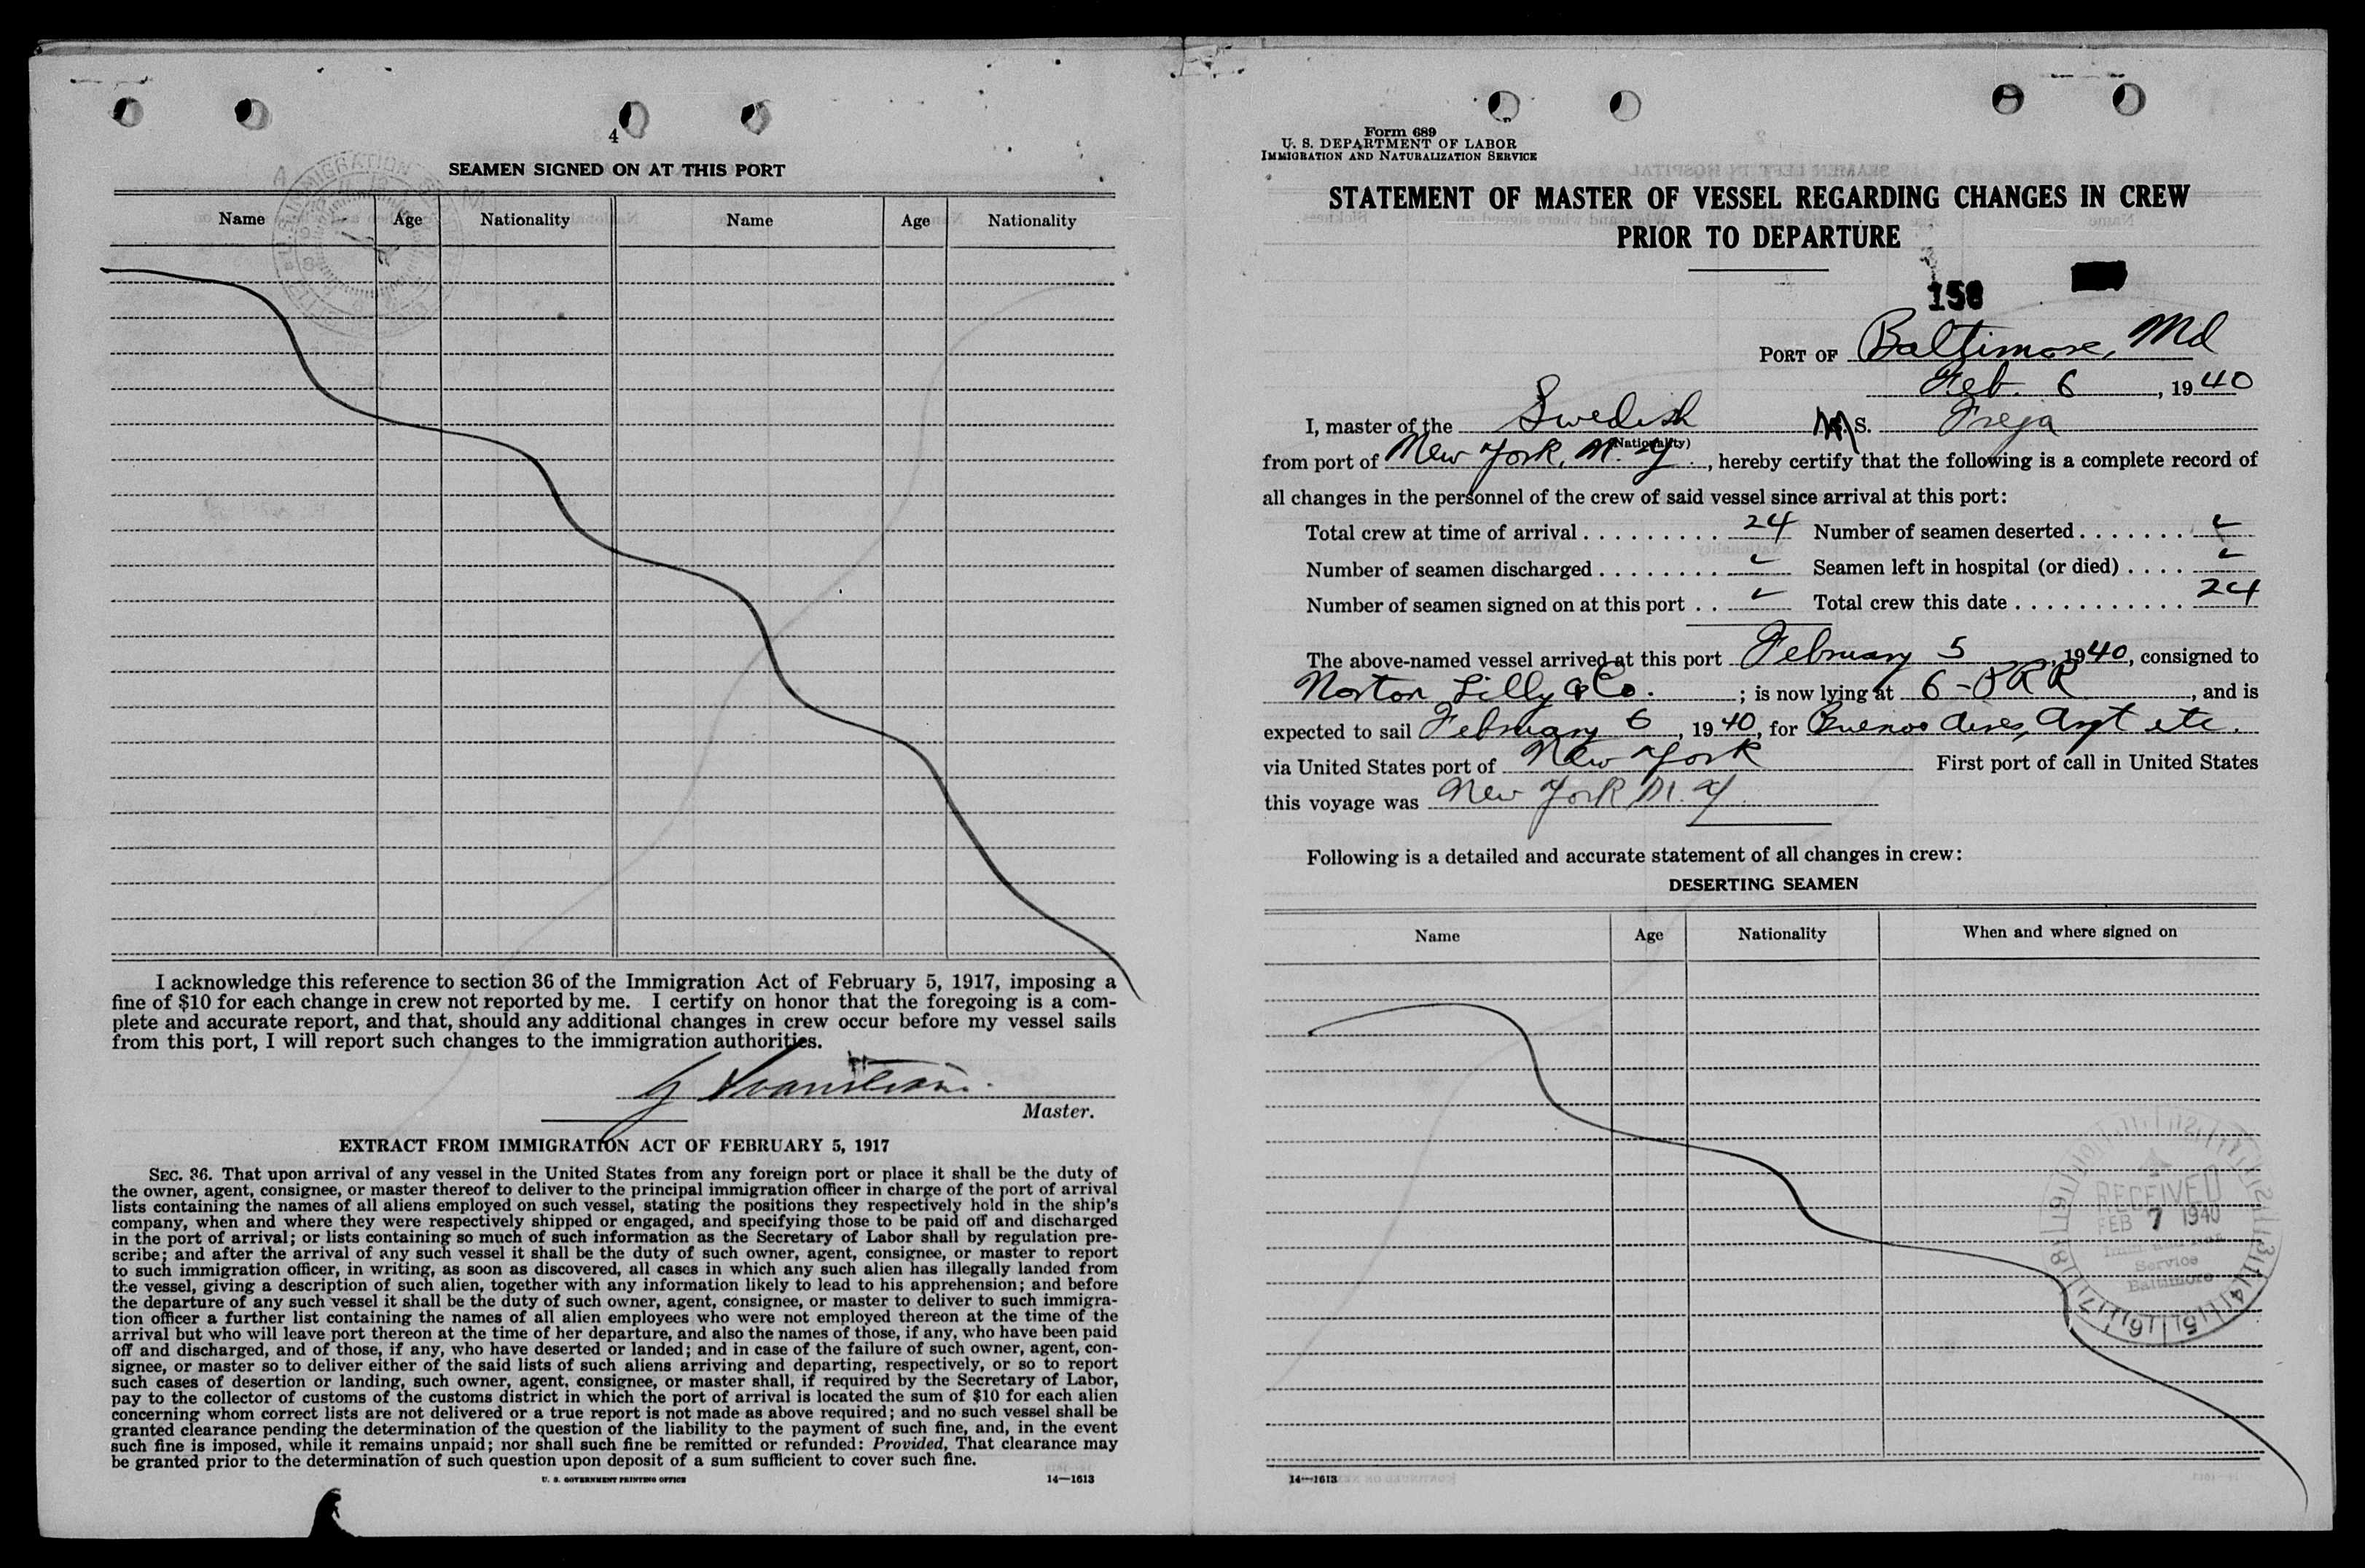 4
SEAMEN SIGNED ON AT THIS PORT
Name Age Nationality Name Age Nationality
I acknowledge this reference to section 36 of the Immigration Act of February 5, 1917, imposing a
fine of $10 for each change in crew not reported by me. I certify on honor that the foregoing is a com-
plete and accurate report, and that, should any additional changes in crew occur before my vessel sails
from this port, I will report such changes to the immigration authorities.
Master.
EXTRACT FROM IMMIGRATION ACT OF FEBRUARY 5, 1917
SEC. 36. That upon arrival of any vessel in the United States from any foreign port or place it shall be the duty of
the owner, agent, consignee, or master thereof to deliver to the principal immigration officer in charge of the port of arrival
lists containing the names of all aliens employed on such vessel, stating the positions they respectively hold in the ship's
company, when and where they were respectively shipped or engaged, and specifying those to be paid off and discharged
in the port of arrival; or lists containing so much of such information as the Secretary of Labor shall by regulation pre-
scribe; and after the arrival of any such vessel it shall be the duty of such owner, agent, consignee, or master to report
to such immigration officer, in writing, as soon as discovered, all cases in which any such alien has illegally landed from
the vessel, giving a description of such alien, together with any information likely to lead to his apprehension; and before
the departure of any such vessel it shall be the duty of such owner, agent, consignee, or master to deliver to such immigra-
tion officer a further list containing the names of all alien employees who were not employed thereon at the time of the
arrival but who will leave port thereon at the time of her departure, and also the names of those, if any, who have been paid
off and discharged, and of those, if any, who have deserted or landed; and in case of the failure of such owner, agent, con-
signee, or master so to deliver either of the said lists of such aliens arriving and departing, respectively, or so to report
such cases of desertion or landing, such owner, agent, consignee, or master shall, if required by the Secretary of Labor,
pay to the collector of customs of the customs district in which the port of arrival is located the sum of $10 for each alien
concerning whom correct lists are not delivered or a true report is not made as above required; and no such vessel shall be
granted clearance pending the determination of the question of the liability to the payment of such fine, and, in the event
such fine is imposed, while it remains unpaid; nor shall such fine be remitted or refunded: Provided, That clearance may
be granted prior to the determination of such question upon deposit of a sum sufficient to cover such fine.
U. S. GOVERNMENT PRINTING OFFICE 14—1613
Form 689
U. S. DEPARTMENT OF LABOR
IMMIGRATION AND NATURALIZATION SERVICE
STATEMENT OF MASTER OF VESSEL REGARDING CHANGES IN CREW
PRIOR TO DEPARTURE
158
PORT OF Baltimore, Md
Feb. 6, 1940
I, master of the Swedish M.S. Freja
(Nationality)
from port of New York, N.Y., hereby certify that the following is a complete record of
all changes in the personnel of the crew of said vessel since arrival at this port:
Total crew at time of arrival . . . . . . . . . 24 Number of seamen deserted . . . . . . .
Number of seamen discharged . . . . . . . . Seamen left in hospital (or died) . . . .
Number of seamen signed on at this port . . Total crew this date . . . . . . . . . . . . 24
The above-named vessel arrived at this port February 5, 1940, consigned to
Norton Lilly & Co. ; is now lying at 6-PRR, and is
expected to sail February 6, 1940, for Buenos Aires, Argt etc.
via United States port of New York First port of call in United States
this voyage was New York N.Y.
Following is a detailed and accurate statement of all changes in crew:
DESERTING SEAMEN
Name Age Nationality When and where signed on
RECEIVED
FEB 7 1940
Service
Baltimore
14—1613